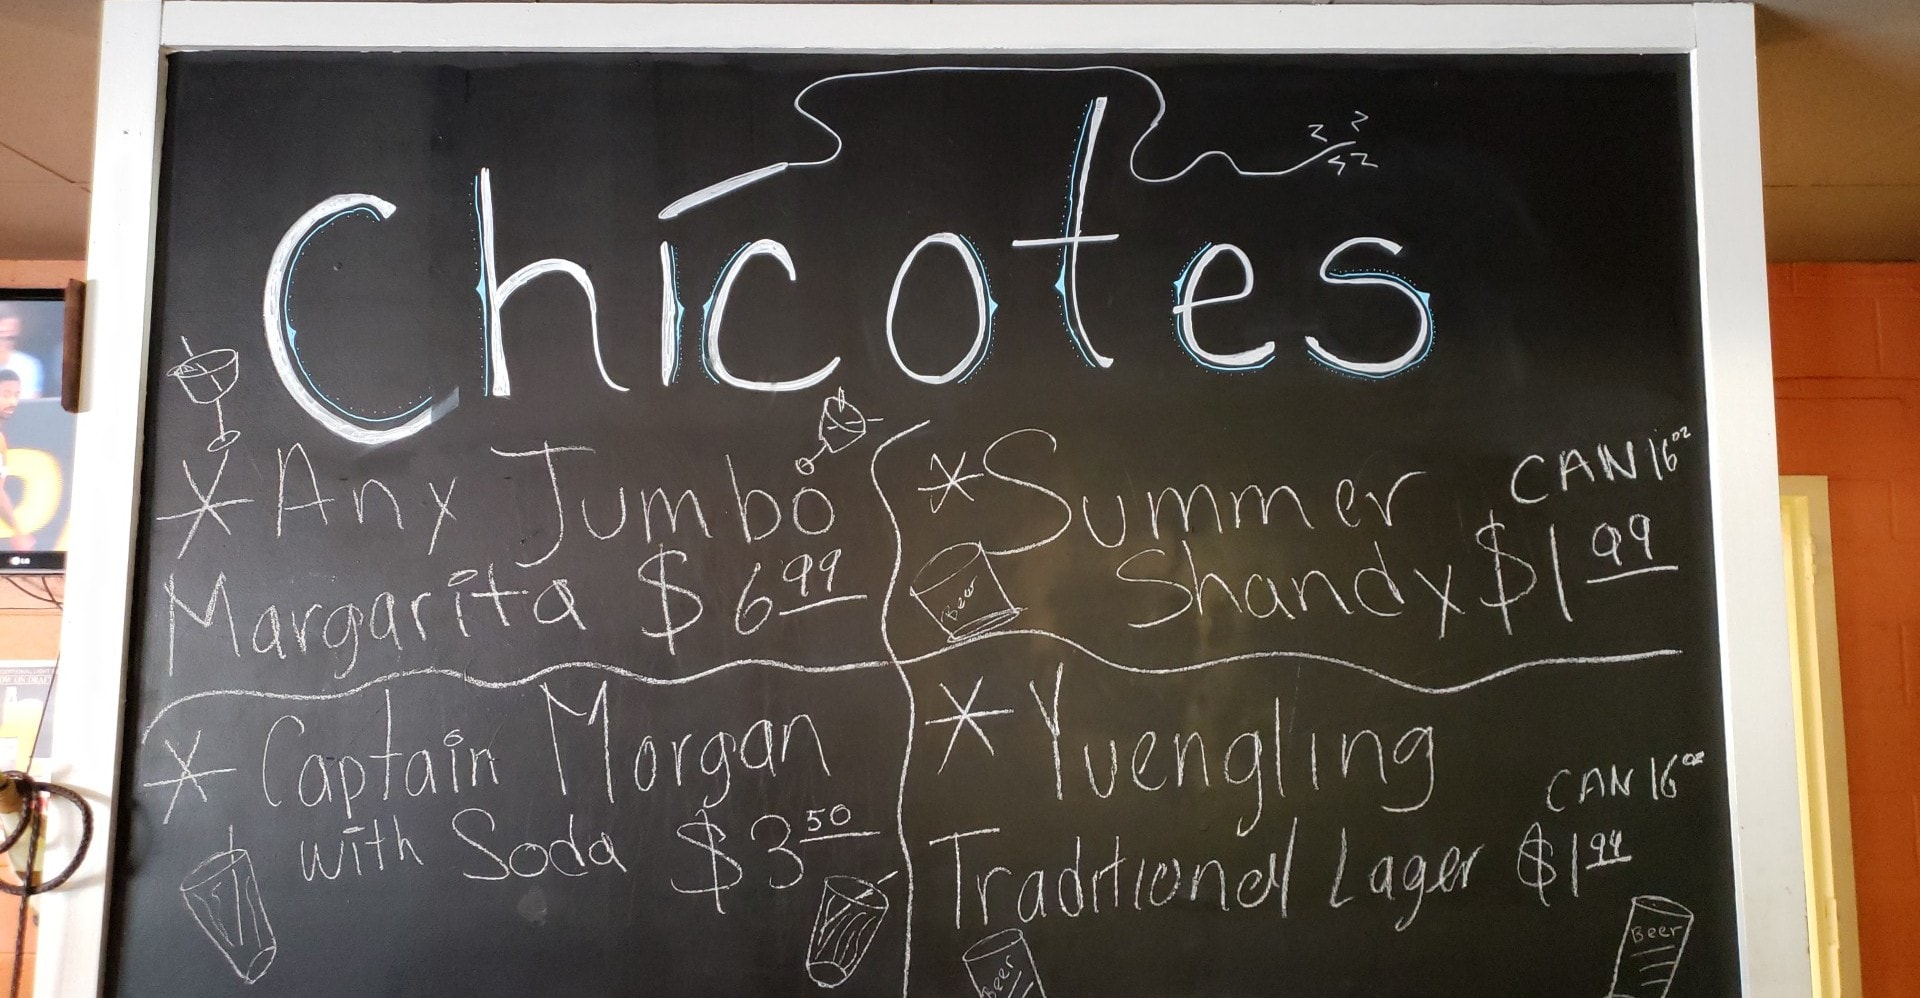 Chicotes
* Any Jumbo
Margarita $6.99
* Summer
CAN 16oz
Shandy $1.99
Beer
* Captain Morgan
with Soda $3.50
* Yuengling
CAN 16oz
Traditional Lager $1.99
Beer
Beer
LG